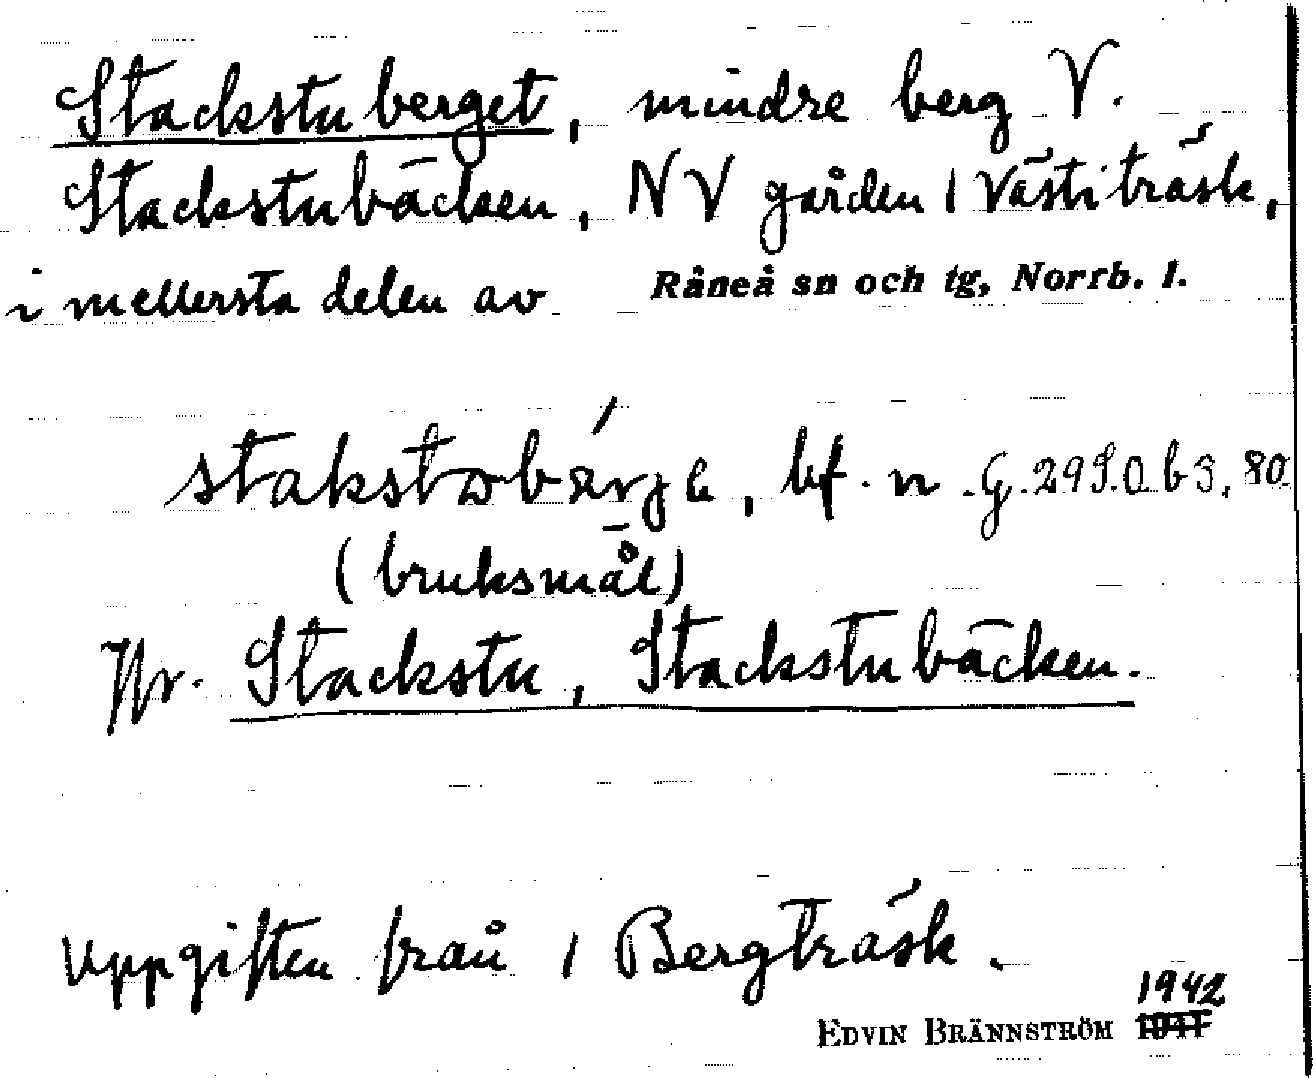 Stackstuberget, mindre berg V.
Stackstubäcken, NV gården 1 Västiträsk,
i mellersta delen av Råneå sn och tg, Norrb. l.
bf. n
(bruksmål)
Jfr. Stackstu, Stackstubäcken.
Uppgiften från 1 Bergträsk.
1942
EDVIN BRÄNNSTRÖM 1941